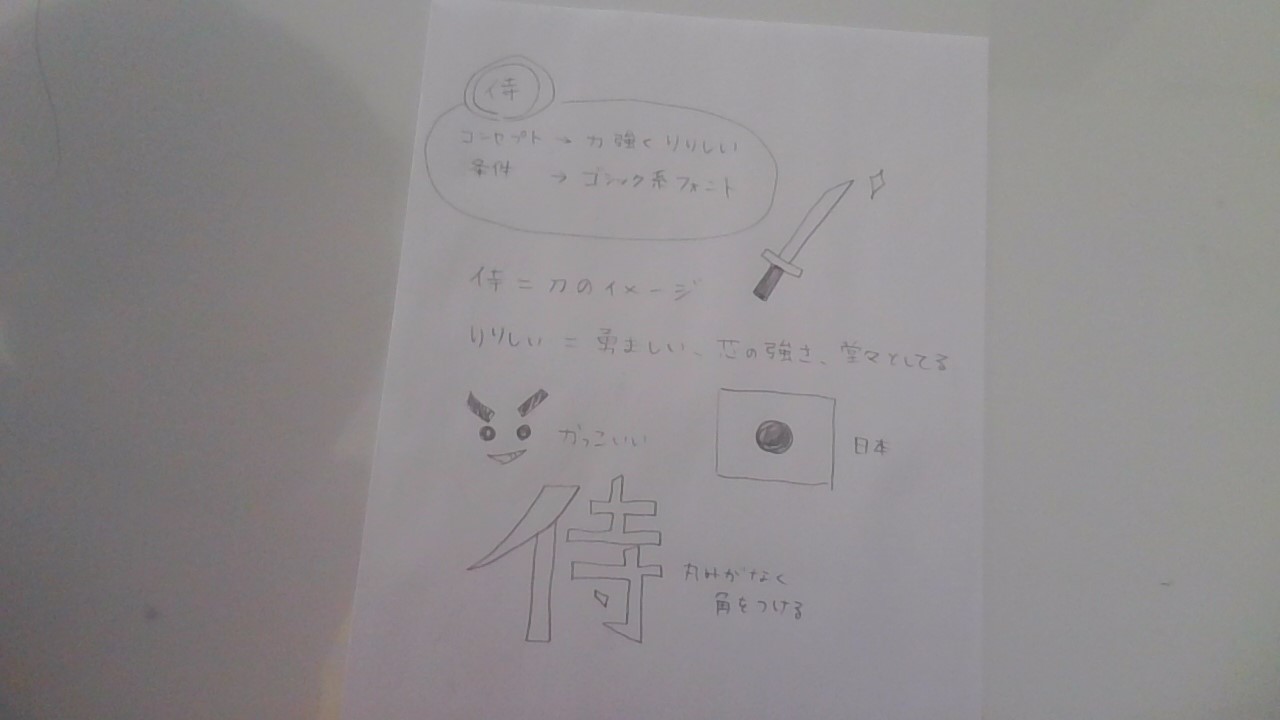 侍
コンセプト → 力強くりりしい
条件 → ゴシック系フォント
侍 = 刀のイメージ
りりしい = 勇ましい、芯の強さ、堂々としてる
かっこいい
日本
侍
丸みがなく
角をつける